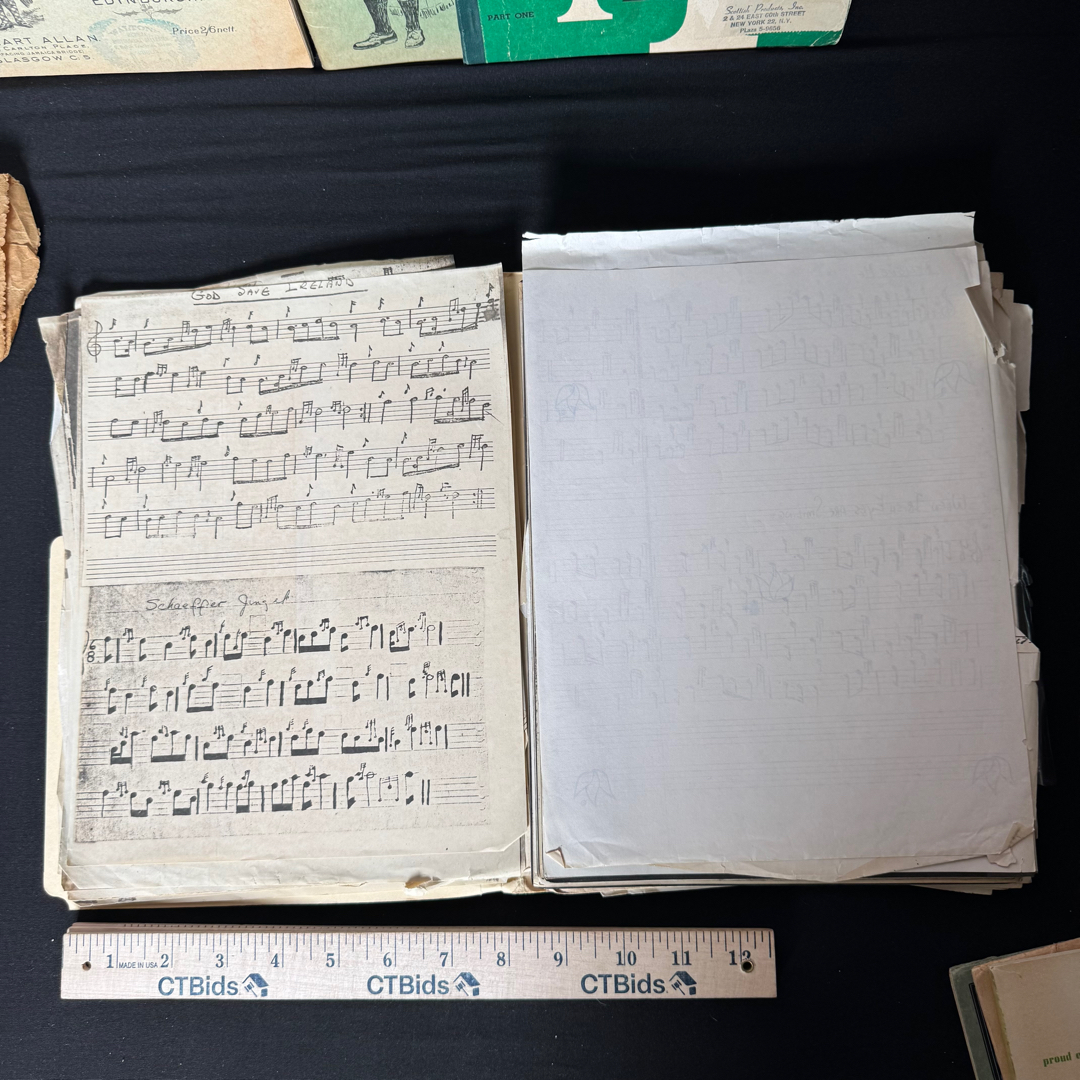 EDINBURGH
ART ALLAN
CARLTON PLACE
GLASGOW C.5
Price 2/6 nett.
PART ONE
Scottish Products Inc.
2 & 24 EAST 60th STREET
NEW YORK 22, N.Y.
PLaza 5-9656
GOD SAVE IRELAND
Schaeffier
6
8
1 MADE IN USA 2 3 4 5 6 7 8 9 10 11 12
CTBids CTBids CTBids
proud